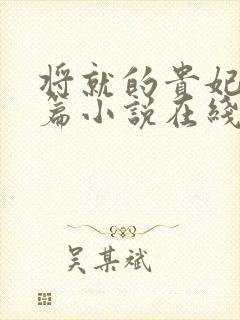 将就的貴妃
篇小説在綫
吴某斌